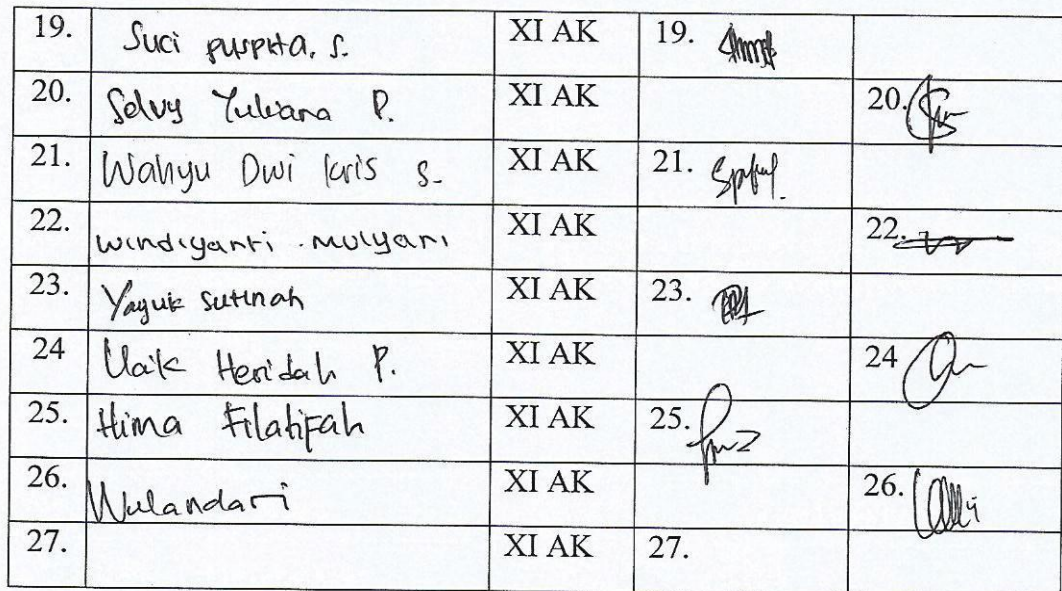 19. Suci puspita. S. XI AK 19.
20. Selvy Yuliana P. XI AK 20.
21. Wahyu Dwi Kris S. XI AK 21.
22. Windiyarti Mulyani XI AK 22.
23. Yayuk Sutinah XI AK 23.
24 Uaik Heridah P. XI AK 24
25. Hima Filatifah XI AK 25.
26. Wulandari XI AK 26.
27. XI AK 27.